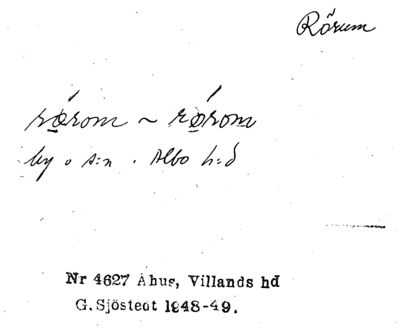 Rörum
rǿrom ~ rǿrom
by o s:n . Albo h:d
Nr 4627 Åhus, Villands hd
G. Sjöstedt 1948-49.